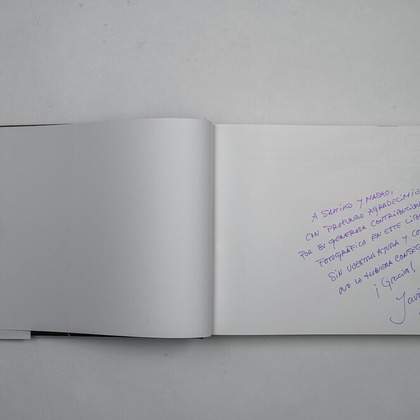 A SACHIKO Y MASAO,
CON PROFUNDO AGRADECIMIE
POR SU GENEROSA CONTRIBUCIÓN
FOTOGRÁFICA EN ESTE LIBR
SIN VUESTRA AYUDA Y CO
NO LO HUBIERA CONSEG
¡Gracias!
Javi